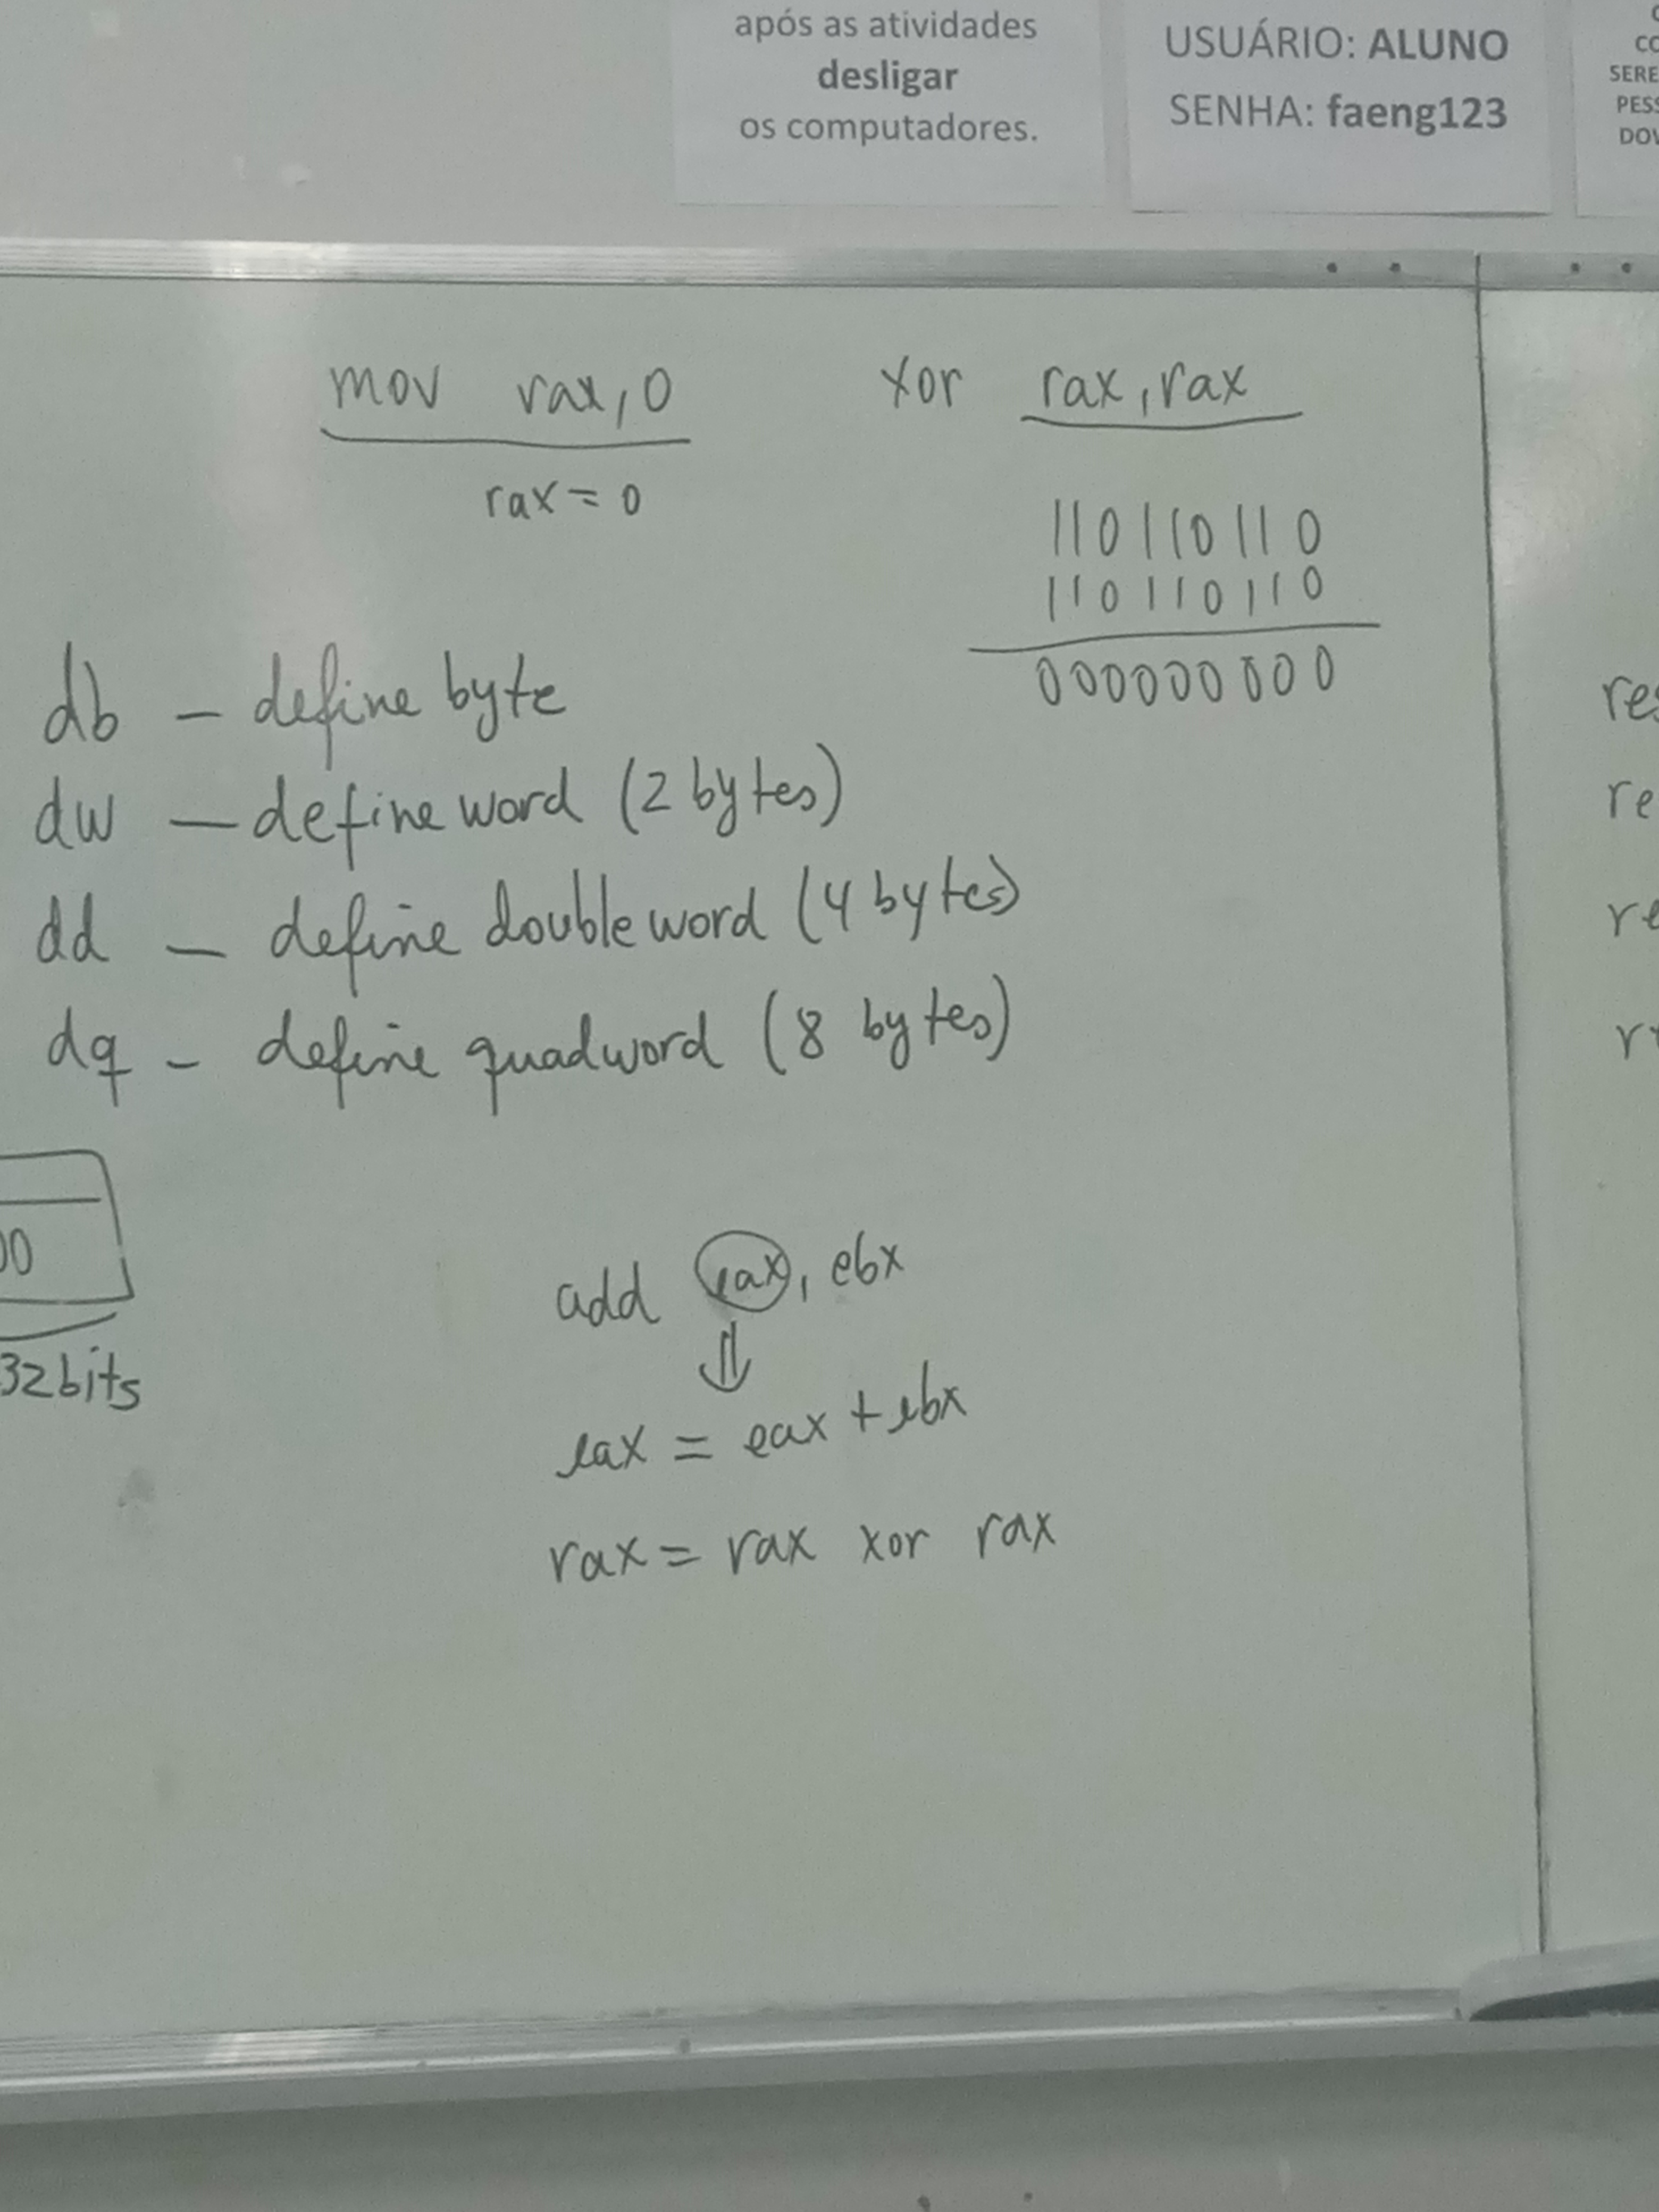 após as atividades
desligar
os computadores.
USUÁRIO: ALUNO
SENHA: faeng123
SERE
PESS
mov rax, 0
rax = 0
xor rax, rax
110110110
110110110
000000000
db - define byte
dw - define word (2 bytes)
dd - define double word (4 bytes)
dq - define quadword (8 bytes)
32 bits
add eax, ebx
eax = eax + ebx
rax = rax xor rax
res
re
re